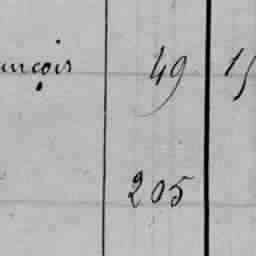 ançois 49 15
205